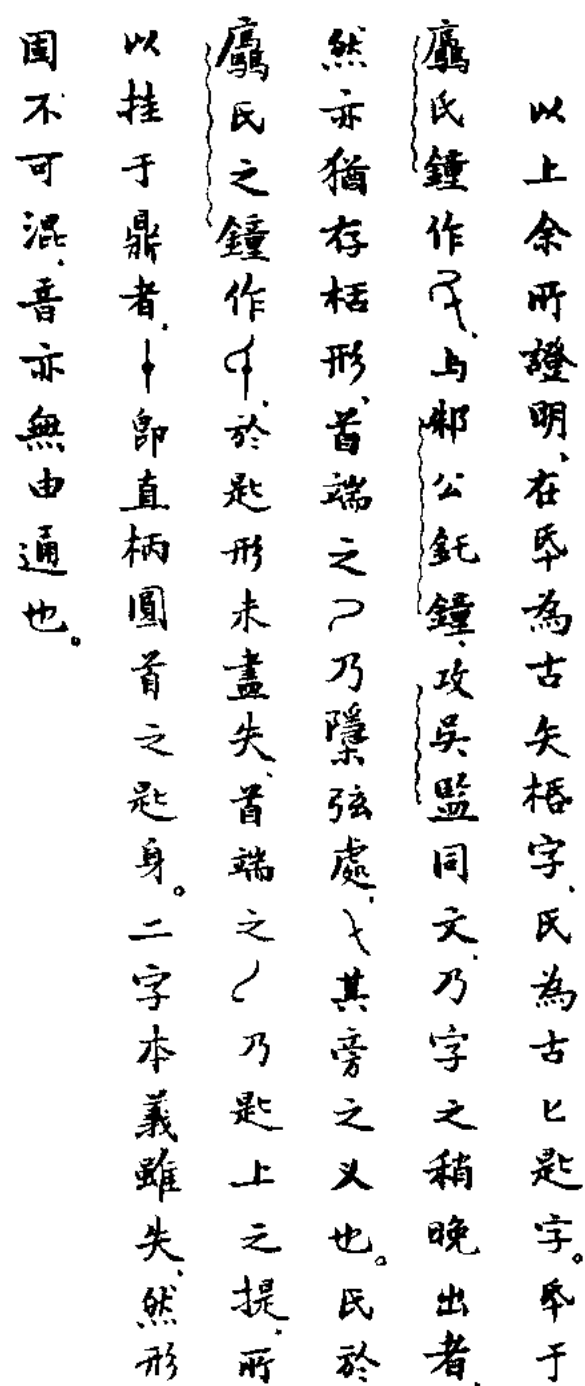 以上余所證明、在氒為古矢桰字、氏為古匕匙字。氒于
氏鐘作、与邾公鐘、攻吳監同文、乃字之稍晚出者、
然亦猶存栝形、首端之乃檃弦處、其旁之义也。氏於
氏之鐘作、於匙形未盡失、首端之乃匙上之提、所
以挂于鼎者、即直柄圓首之匙身。二字本義雖失、然形
固不可混、音亦無由通也。